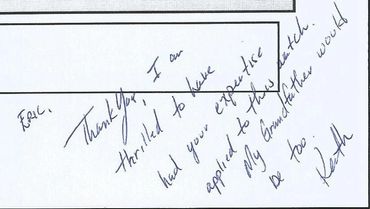 ERIC,
Thank you, I am
thrilled to have
had your expertise
applied to this watch.
My Grandfather would
be too.
Keith